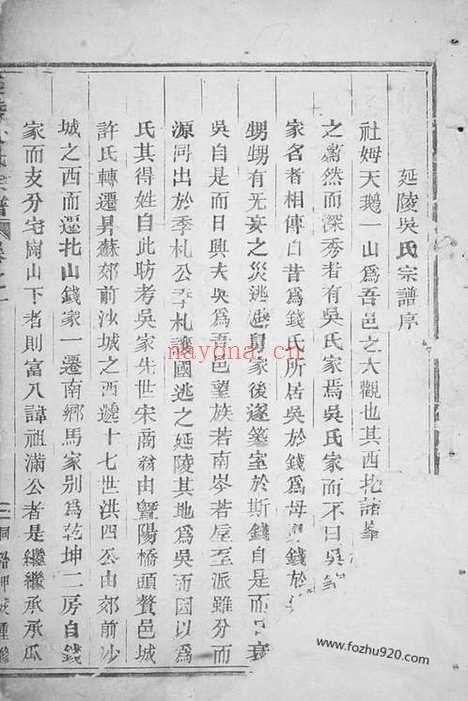 延陵吳氏宗譜序
社姆天鵝一山爲吾邑之大觀也其西北諸峯
之蔚然而深秀若有吳氏家焉吳氏家而不曰吳
家名者相傳白昔爲錢氏所居吳於錢爲母舅錢於
甥甥有无妄之災逃避舅家後遂築室於斯錢自是而
吳自是而日興夫吳爲吾邑望族若南岑若屋至派雖分而
源同出於季札公季札讓國逃之延陵其地爲吳而因以爲
氏其得姓自此昉考吳家先世宋商翁由暨陽橋頭贅邑城
許氏轉遷昇蘇郊前沙城之西遞十七世洪四公由郊前沙
城之西而遷北山錢家一遷南鄉馬家別爲乾坤二房自錢
家而支分宅崗山下者則富八諱祖滿公者是繼繼承承瓜
nayona.cn
www.fozhu920.com